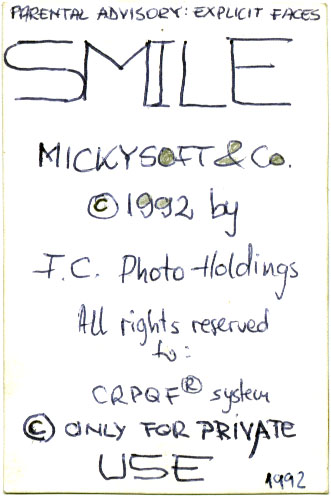 PARENTAL ADVISORY: EXPLICIT FACES
SMILE
MICKYSOFT & Co.
© 1992 by
F.C. Photo-Holdings
All rights reserved
to:
CRPQF® system
© ONLY FOR PRIVATE
USE
1992